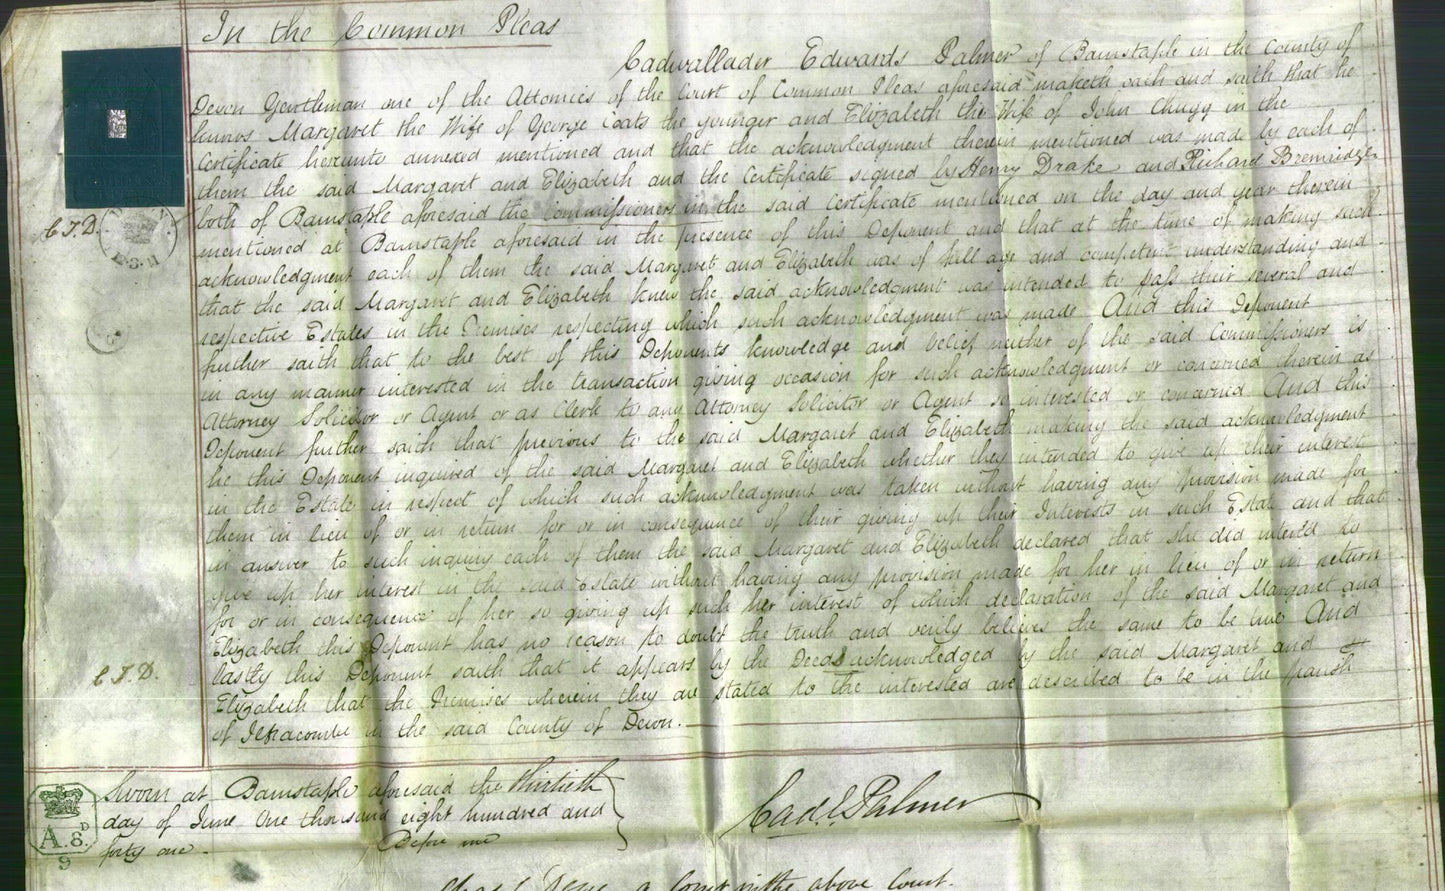 In the Common Pleas
Cadwallader Edwards Palmer of Barnstaple in the County of
Devon Gentleman one of the Attornies of the Court of Common Pleas aforesaid maketh oath and saith that he
knows Margaret the Wife of George Coats the younger and Elizabeth the Wife of John Chugg in the
Certificate hereunto annexed mentioned and that the acknowledgment therein mentioned was made by each of
them the said Margaret and Elizabeth and the Certificate signed by Henry Drake and Richard Bremridge
both of Barnstaple aforesaid the Commissioners in the said Certificate mentioned on the day and year therein
mentioned at Barnstaple aforesaid in the presence of this Deponent and that at the time of making such
acknowledgment each of them the said Margaret and Elizabeth was of full age and competent understanding and
that the said Margaret and Elizabeth knew the said acknowledgment was intended to pass their several and
respective Estates in the Premises respecting which such acknowledgment was made And this Deponent
further saith that to the best of this Deponents knowledge and belief neither of the said Commissioners is
in any manner interested in the transaction giving occasion for such acknowledgment or concerned therein as
Attorney Solicitor or Agent or as Clerk to any Attorney Solicitor or Agent so interested or concerned And this
Deponent further saith that previous to the said Margaret and Elizabeth making the said acknowledgment
he this Deponent inquired of the said Margaret and Elizabeth whether they intended to give up their interest
in the Estate in respect of which such acknowledgment was taken without having any provision made for
them in lieu of or in return for or in consequence of their giving up their Interests in such Estate and that
in answer to such inquiry each of them the said Margaret and Elizabeth declared that she did intend to
give up her interest in the said Estate without having any provision made for her in lieu of or in return
for or in consequence of her so giving up such her interest of which declaration of the said Margaret and
Elizabeth this Deponent has no reason to doubt the truth and verily believes the same to be true And
lastly this Deponent saith that it appears by the Deeds acknowledged by the said Margaret and
Elizabeth that the Premises wherein they are stated to be interested are described to be in the parish
of Ilfracombe in the said County of Devon.
C.I.D.
C.I.D.
A.D
8.
9
Sworn at Barnstaple aforesaid the thirtieth
day of June One thousand eight hundred and
forty one.
Before me
Cad. E. Palmer
a Commr in the above Court.